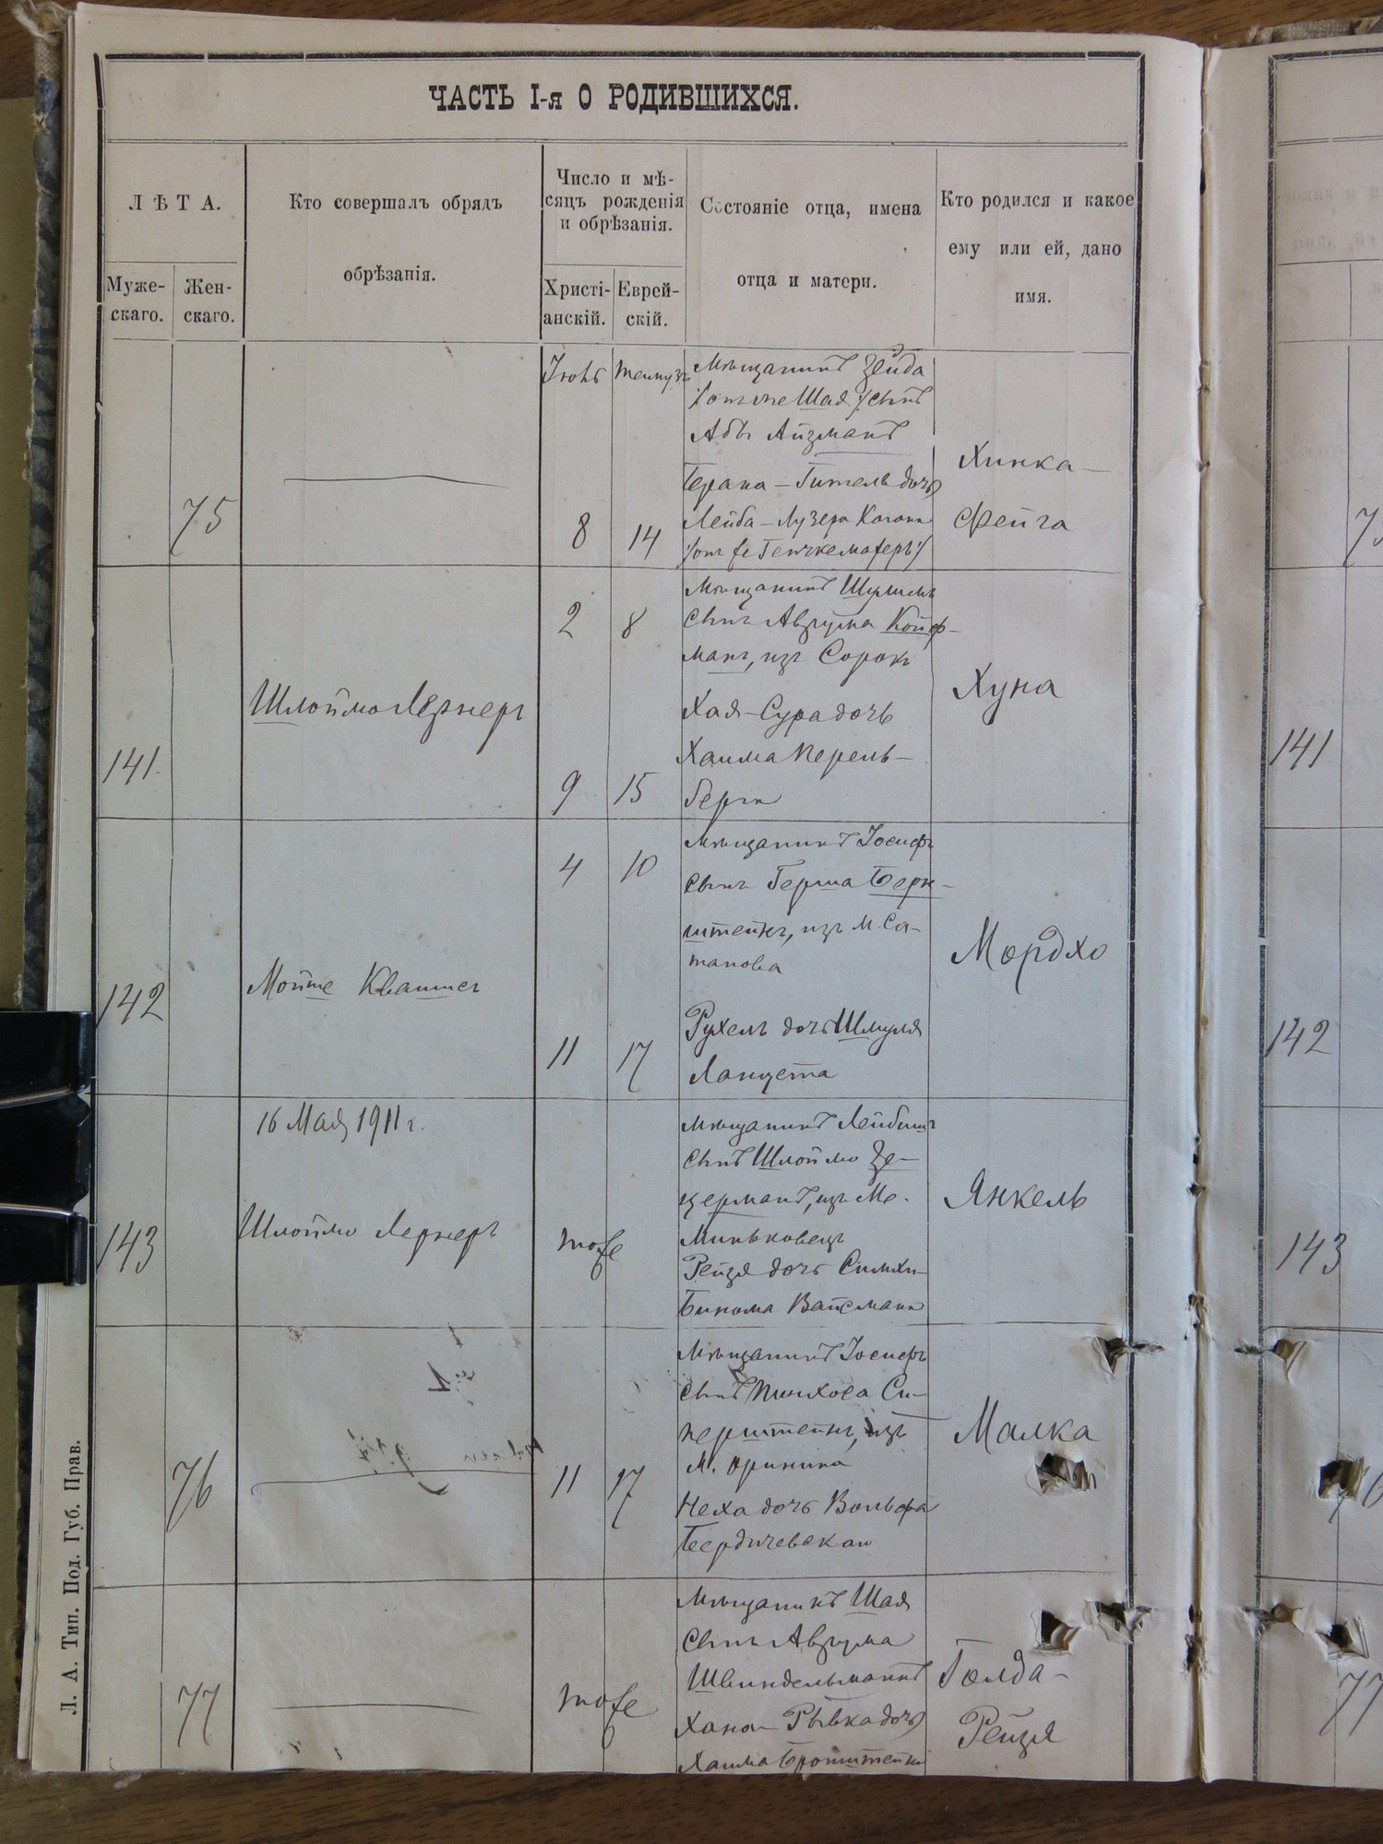 ЧАСТЬ I-я О РОДИВШИХСЯ.
ЛѢТА.
Муже-
скаго.
Жен-
скаго.
Кто совершалъ обрядъ
обрѣзанія.
Число и мѣ-
сяцъ рожденія
и обрѣзанія.
Христі-
анскій.
Еврей-
скій.
Состояніе отца, имена
отца и матери.
Кто родился и какое
ему или ей, дано
имя.
75
Іюнь
8
14
Мѣщанинъ Зейда
онъ же Шая сынъ
Абы Айзманъ
Гитель дочь
Лейба-Лузера Когана
Хинка-
Фейга
141
Шлоймо Лернеръ
2
8
9
15
Мѣщанинъ Шулимъ
сынъ Аврума Койф-
манъ, изъ Сорокъ
Хая-Сура дочь
Хаима Перель-
берга
Хуна
142
Мойше
4
10
11
17
Мѣщанинъ Іосифъ
сынъ Герша Берн-
штейнъ, изъ м. Са-
танова
Рухель дочь Шмуля
Ланцета
Мордхо
143
16 Мая 1911 г.
Шлоймо Лернеръ
тоже
Мѣщанинъ Лейбишъ
сынъ Шлоймо Зе-
церманъ, изъ м.
Миньковецъ
Рейзя дочь Симхи-
Бинома Вайсмана
Янкель
76
11
17
Мѣщанинъ Іосифъ
сынъ Пинхоса Си-
перштейнъ, изъ
м. Оринина
Неха дочь Вольфа
Бердичевская
Малка
77
тоже
Мѣщанинъ Шая
сынъ Аврума
Швиндельманъ
Хана-Рывка дочь
Хаима Бронштейна
Голда-
Рейзя
Л. А. Тип. Под. Губ. Прав.
141
142
143
77